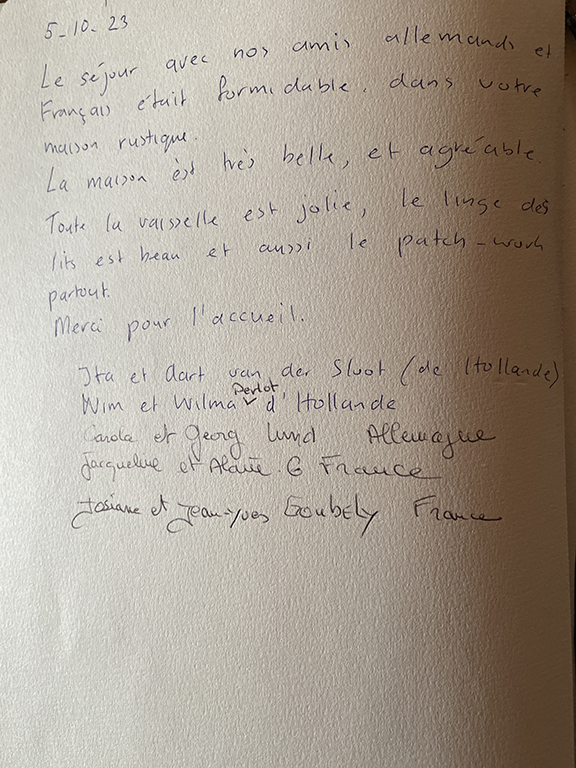 5-10-23
Le séjour avec nos amis allemands et
Français était formidable, dans votre
maison rustique.
La maison est très belle, et agréable.
Toute la vaisselle est jolie, le linge des
lits est beau et aussi le patch-work
partout.
Merci pour l'accueil.
Ita et Aart van der Sluot (de Hollande)
Perlot
Wim et Wilma d'Hollande
Carola et Georg Lund Allemagne
Jacqueline et Alain. G France
Josiane et Jean-Yves Goubely France